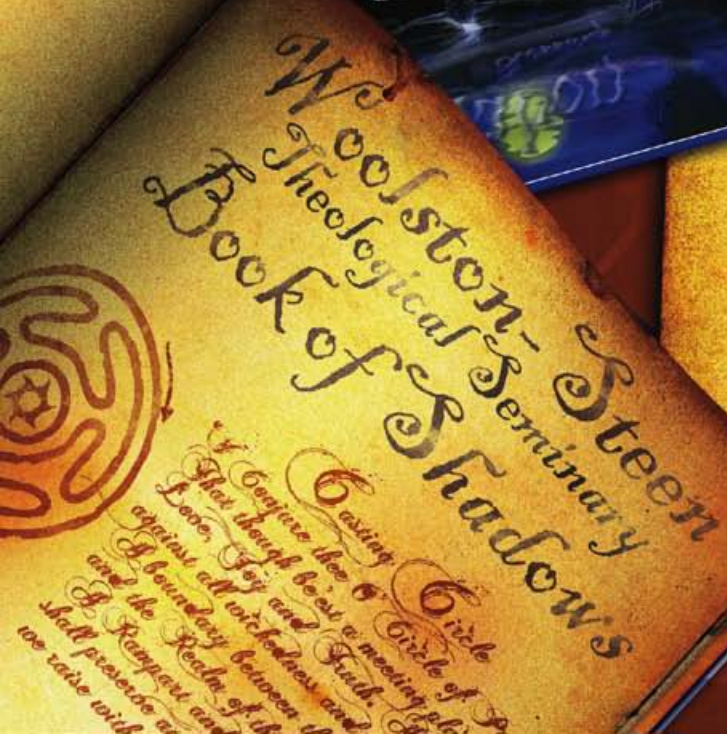 Woolston-Steen
Theological Seminary
Book of Shadows
Casting Circle
I Conjure thee O Circle of
That though be'est a meeting
Love, Joy and Truth,
against all wickedness and
A boundary between
and the Realm of
A Rampart and
shall preserve
we raise with